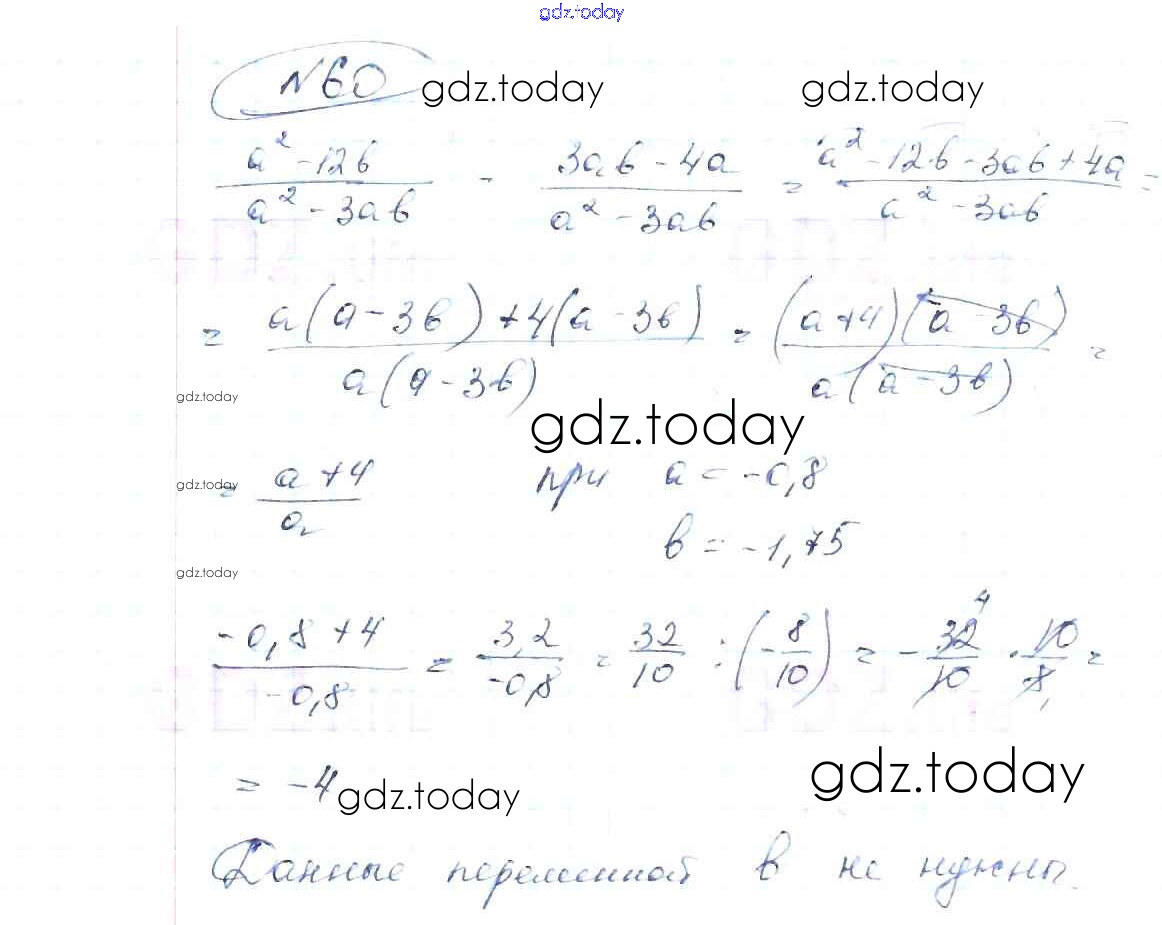 gdz.today
N60 gdz.today gdz.today
a² - 12b / a² - 3ab - 3ab - 4a / a² - 3ab = a² - 12b - 3ab + 4a / a² - 3ab =
= a(a - 3b) + 4(a - 3b) / a(a - 3b) = (a + 4)(a - 3b) / a(a - 3b) =
gdz.today
gdz.today
= a + 4 / a при a = -0,8
gdz.today
b = -1,75
gdz.today
-0,8 + 4 / -0,8 = 3,2 / -0,8 = 32/10 : (-8/10) = -32/10 · 10/8 =
4 1
= -4 gdz.today gdz.today
Данные переменной b не нужны.